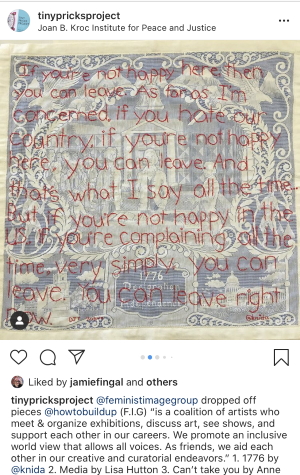 tinypricksproject
Joan B. Kroc Institute for Peace and Justice
If you're not happy here then
you can leave. As far as I'm
concerned, if you hate our
Country, if you're not happy
here, you can leave. And
that's what I say all the time.
But if you're not happy in the
US, if you're complaining all the
time, very simply, you can
leave. You can leave right
now.
1776
Liked by jamiefingal and others
tinypricksproject @feministimagegroup dropped off
pieces @howtobuildup (F.I.G) “is a coalition of artists who
meet & organize exhibitions, discuss art, see shows, and
support each other in our careers. We promote an inclusive
world view that allows all voices. As friends, we aid each
other in our creative and curatorial endeavors.” 1. 1776 by
@knida 2. Media by Lisa Hutton 3. Can't take you by Anne